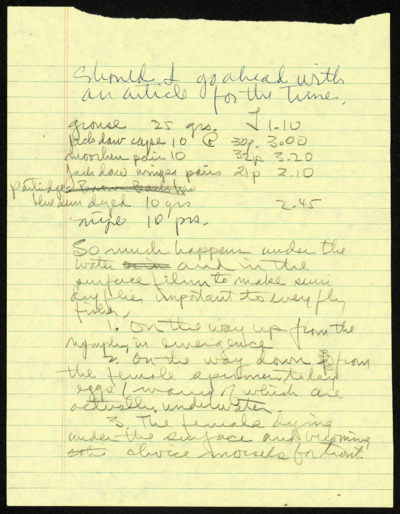 Should I go ahead with
an article for the Time.
grouse 25 grs. £ 1.10
Jackdaw cape 10 @ 30p. 3.00
moorhen pair 10 32p 3.20
Jackdaw wings pairs 21p 2.10
partridge
blue dun dyed 10 grs 2.45
snipe 10 prs.
So much happens under the
water and in the
surface film to make
dry flies important to every fly
fisher.
1. On the way up from the
nymph, in emergence
2. On the way down from
the female spinners to lay
eggs / many of which are
actually underwater.
3. The females dying
under the surface and becoming
choice morsels for trout.